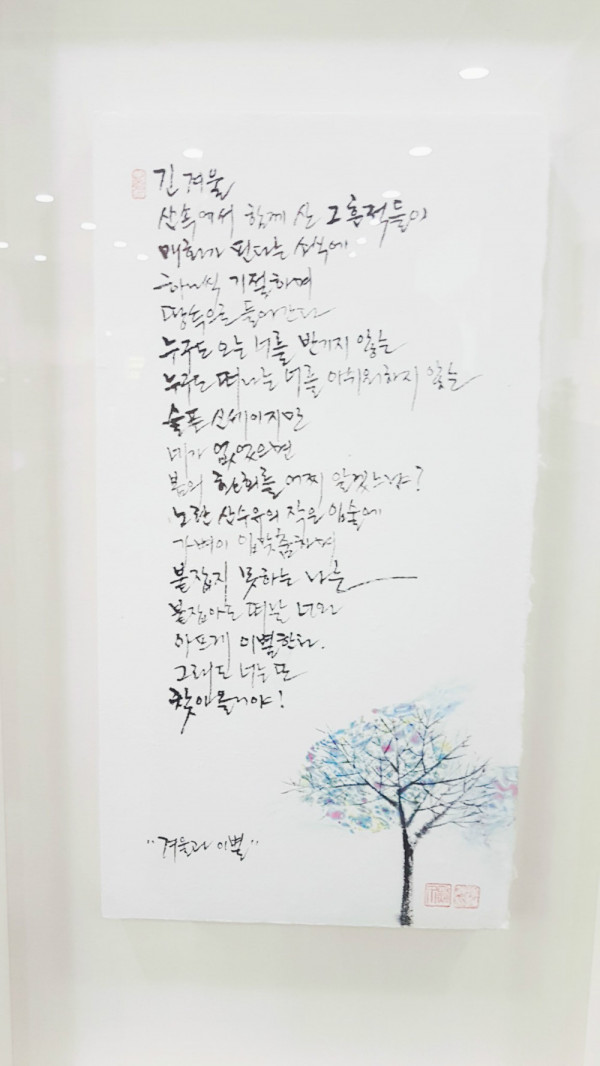 긴 겨울
산속에서 함께 산 그 흔적들이
매화가 핀다는 소식에
하나씩 기절하며
땅속으로 들어간다
누구도 오는 너를 반기지 않는
누구도 떠나는 너를 아쉬워하지 않는
슬픈 신세이지만
네가 없었으면
봄의 환희를 어찌 알겠느냐?
노란 산수유의 작은 입술에
가벼이 입맞춤하며
붙잡지 못하는 나는
붙잡아도 떠날 너와
아프게 이별한다.
그래도 너는 또
찾아올거야!
"겨울과 이별"